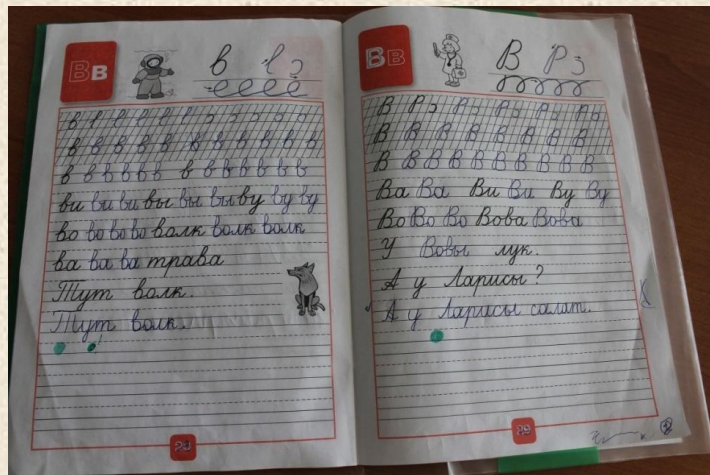 Вв
в
в в в в в в в в в в в в
в в в в в в в в в в в
ви ви ви вы вы вы ву ву ву
во во во во волк волк волк
ва ва ва трава
Тут волк.
Тут волк.
Вв
В
В В В В В В В В В
В В В В В В В В В В
Ва Ва Ви Ви Ву Ву
Во Во Во Вова Вова
У Вовы лук.
А у Ларисы?
А у Ларисы салат.